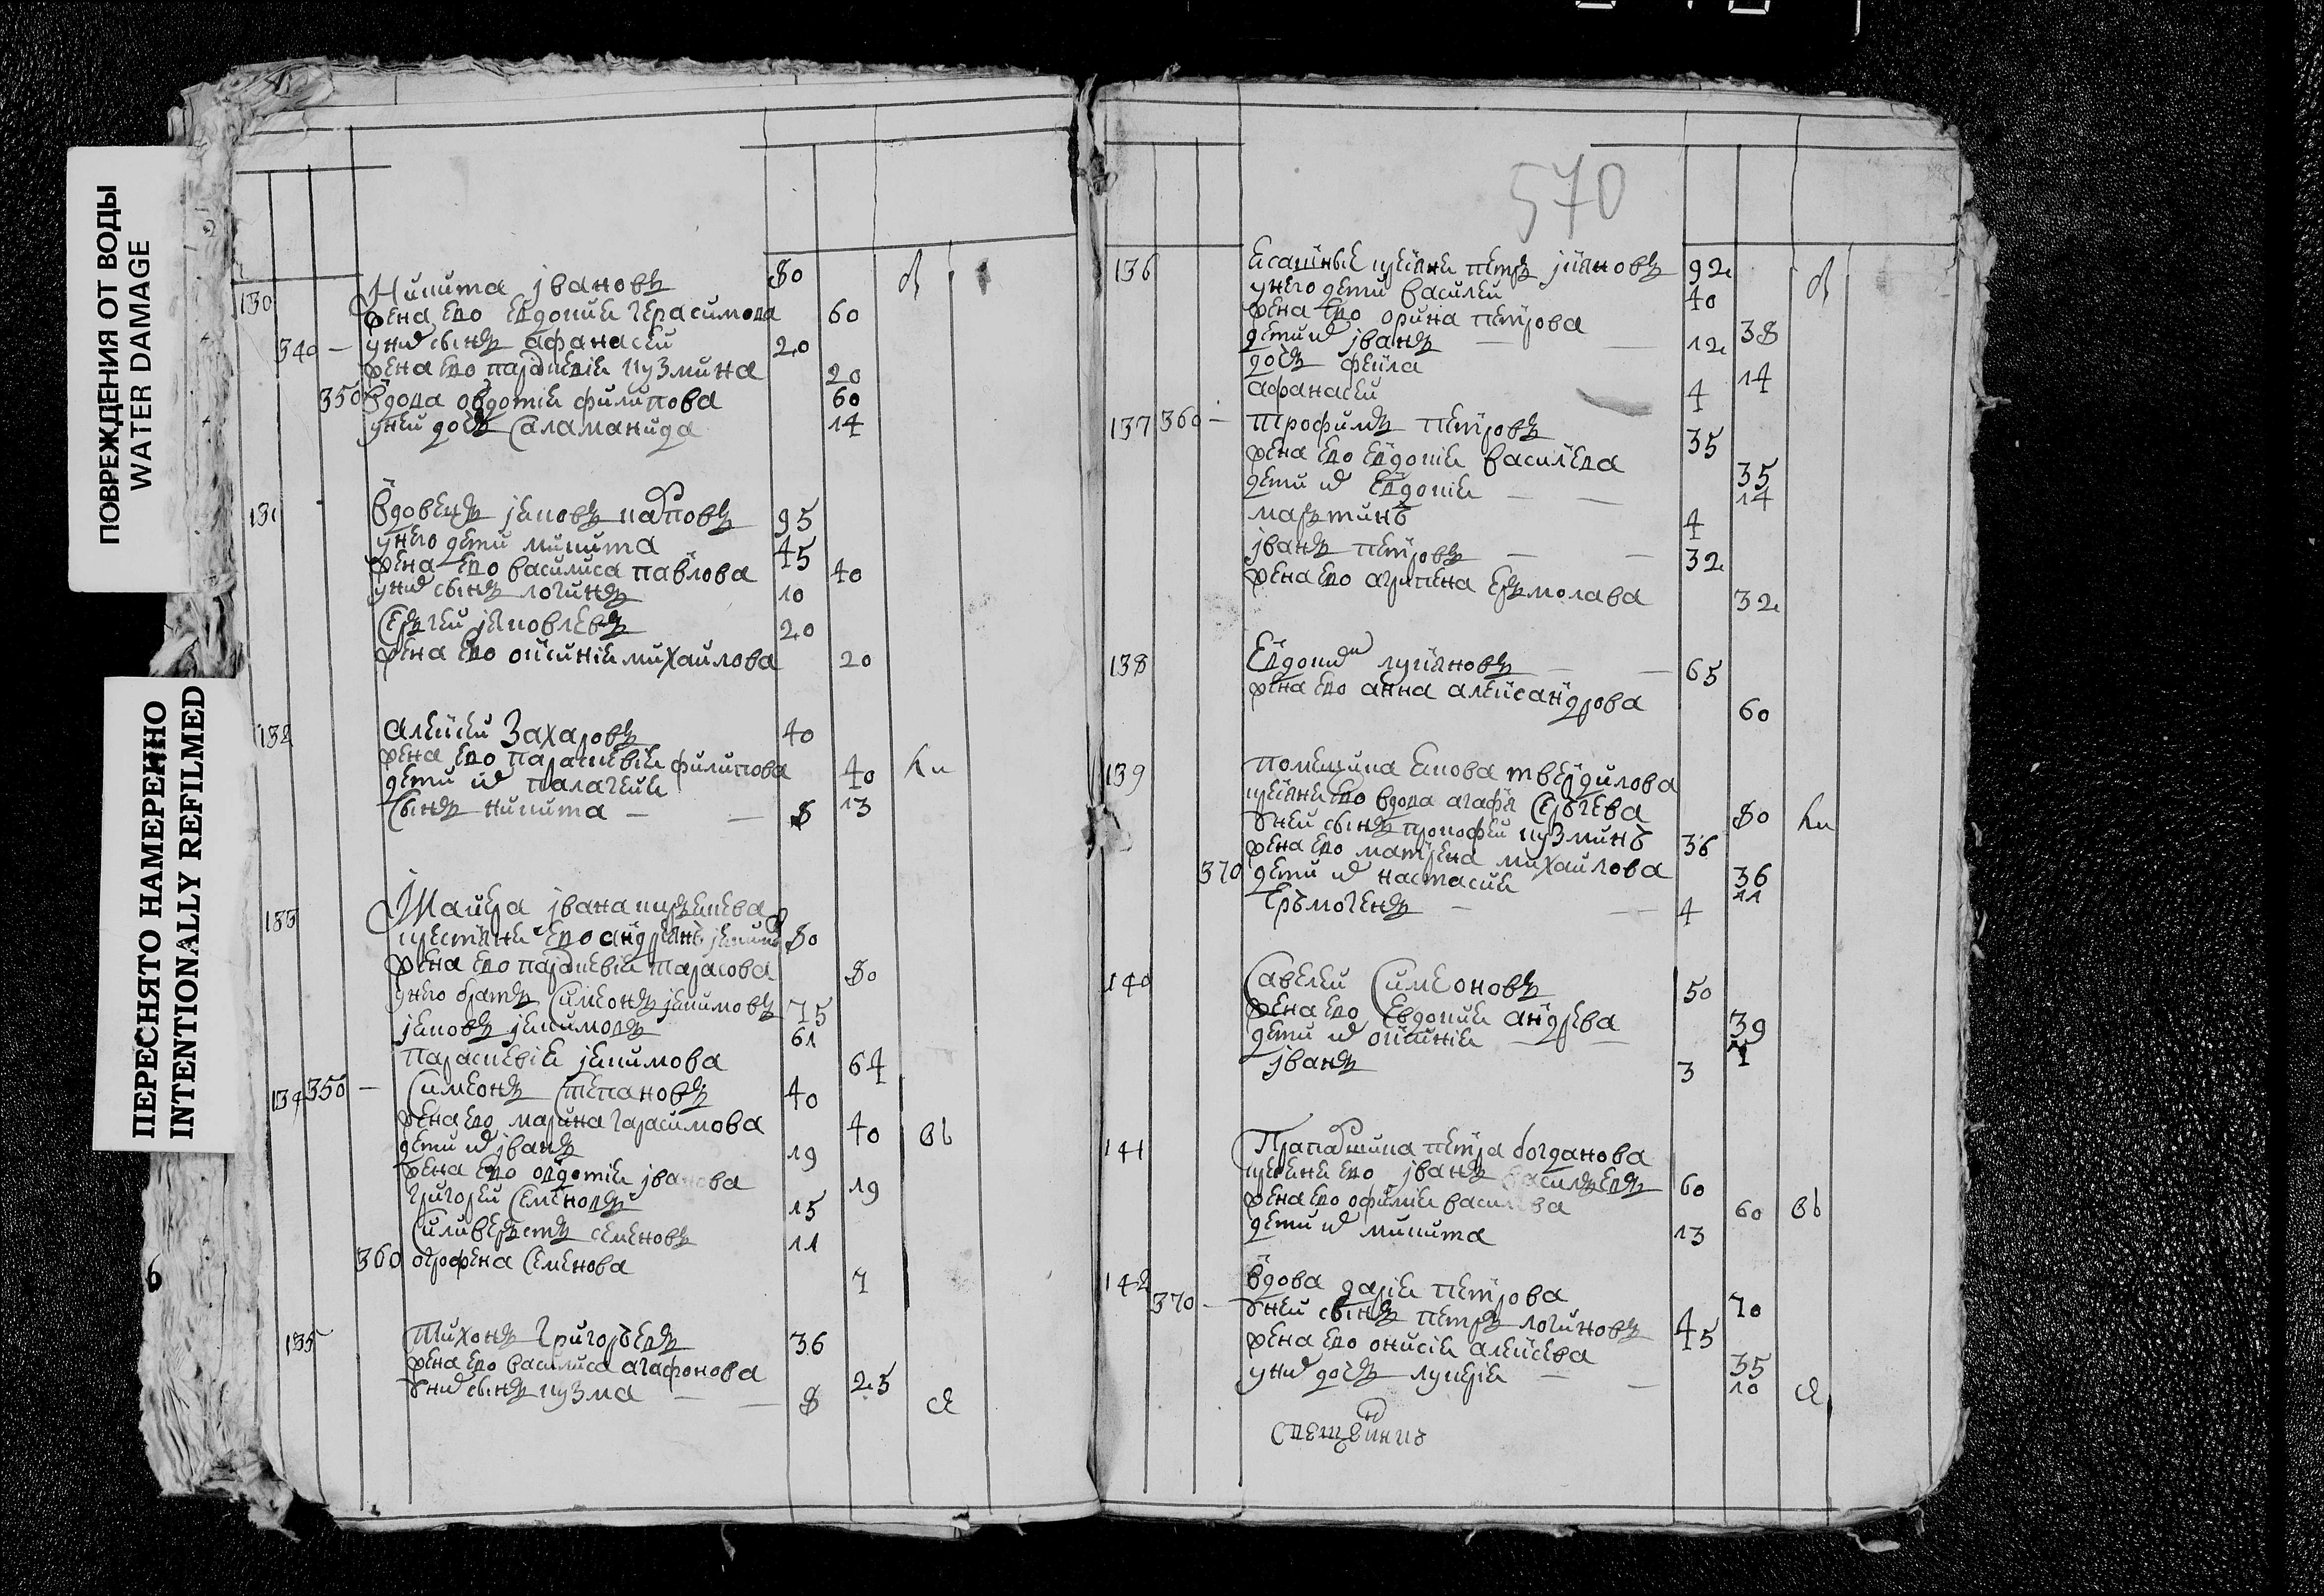 ПОВРЕЖДЕНИЯ ОТ ВОДЫ
WATER DAMAGE
ПЕРЕСНЯТО НАМЕРЕННО
INTENTIONALLY REFILMED
6
130 Никита івановъ 80
жена ево евдокиѣ герасимова 60
340 — у них сынъ афанасеи 20
жена ево параскевіѣ кузмина 20
350 вдова овдотіѣ филипова 60
у неи дочь Саламанида 14
131 вдовецъ іяковъ карповъ 95
у него дети микита 45
жена ево василиса павлова 40
у них сынъ логинъ 10
Сергеи іяковлевъ 20
жена ево оксиніѣ михаилова 20
132 алексеи Захаровъ 40
жена ево параскевиѣ филипова 40
дети их палагеиѣ 13
Сынъ никита — — 8
133 Маиора івана
крестяне ево андреянъ іякимовъ 80
жена ево параскевіѣ тарасова 80
у него братъ Симеонъ іякимовъ 75
іяковъ іякимовъ 61
параскевіѣ іякимова 64
134 350 — Симеонъ Степановъ 40
жена ево марина гарасимова 40
дети их іванъ 19
жена ево овдотіѣ іванова 19
григореи Семеновъ 15
Силиверстъ семеновъ 11
360 огрофена Семенова 7
135 Тихонъ Григорьевъ 36
жена ево василиса агафонова 25
у них сынъ кузма — — 8
570
136 крѣсяне петръ 92
у него дети василеи 40
жена ево орина петрова 38
дети их іванъ — — 12
дочь фекла 14
афанасеи 4
137 360 — Трофимъ петровъ 35
жена ево евдокіѣ василева 35
дети их евдокіѣ — — 14
мартинъ 4
іванъ петровъ — — 32
жена ево агрипена ермолава 32
138 Евдоким лукяновъ — — 65
жена ево анна александрова 60
139 помещика якова твердилова
крсяне ево вдова агафя Сергева 80
у неи сынъ прокофеи кузминъ 36
жена ево матрена михаилова 36
370 дети их настасиѣ 11
Ермогенъ — — 4
140 Савелеи Симеоновъ 50
жена ево Евдокиѣ андрева 39
дети их оксиніѣ — — 7
іванъ 3
141 Прапарщика петра богданова
крсяне ево іванъ васильевъ 60
жена ево офимиѣ василева 60
дети их микита 13
142 вдова дариѣ петрова 70
370 — у неи сынъ петръ логиновъ 45
жена ево онисіѣ алексева 35
у них дочь лукеріѣ — — 10
Священникъ